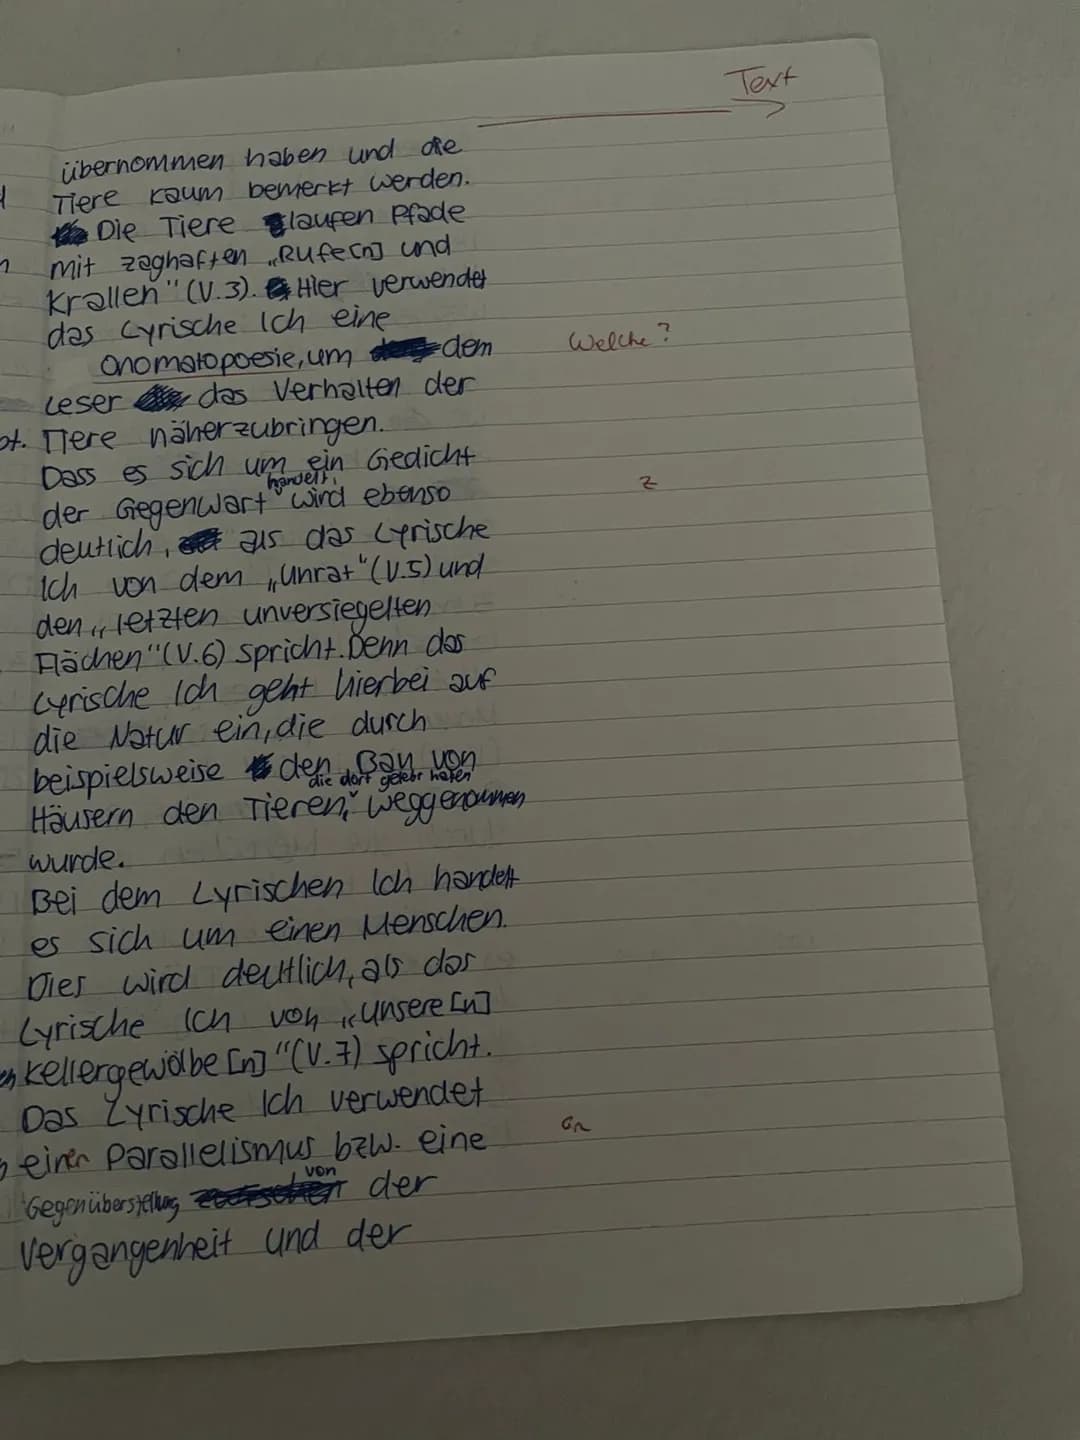 Text
übernommen haben und die
Tiere kaum bemerkt werden.
Die Tiere laufen Pfade
mit zaghaften „Rufe[n] und
Krallen" (V.3). Hier verwendet
das Lyrische Ich eine
Onomatopoesie, um dem
Welche?
Leser das Verhalten der
ot. Tiere näherzubringen.
Dass es sich um ein Gedicht
der Gegenwart handelt, wird ebenso
Z
deutlich, als das Lyrische
Ich von dem „Unrat" (V.5) und
den „letzten unversiegelten
Flächen" (V.6) spricht. Denn das
Lyrische Ich geht hierbei auf
die Natur ein, die durch
beispielsweise den Bau von
Häusern den Tieren, die dort gelebt haben weggenommen
wurde.
Bei dem Lyrischen Ich handelt
es sich um einen Menschen.
Dies wird deutlich, als das
Lyrische Ich von „Unsere[n]
Kellergewölbe[n]" (V.7) spricht.
Das Lyrische Ich verwendet
einen Parallelismus bzw. eine
Gr
Gegenüberstellung von der
Vergangenheit und der